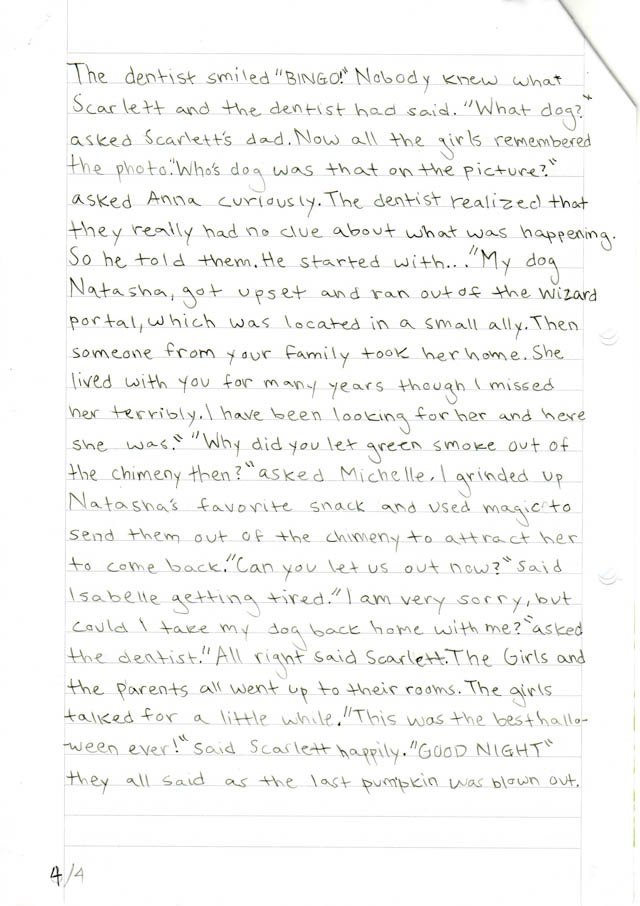 The dentist smiled "BINGO!" Nobody knew what
Scarlett and the dentist had said. "What dog?"
asked Scarlett's dad. Now all the girls remembered
the photo. "Who's dog was that on the picture?"
asked Anna curiously. The dentist realized that
they really had no clue about what was happening.
So he told them. He started with... "My dog
Natasha, got upset and ran out of the wizard
portal, which was located in a small ally. Then
someone from your family took her home. She
lived with you for many years though I missed
her terribly. I have been looking for her and here
she was." "Why did you let green smoke out of
the chimeny then?" asked Michelle. I grinded up
Natasha's favorite snack and used magic to
send them out of the chimeny to attract her
to come back. "Can you let us out now?" said
Isabelle getting tired. "I am very sorry, but
could I take my dog back home with me?" asked
the dentist. "All right said Scarlett. The Girls and
the parents all went up to their rooms. The girls
talked for a little while. "This was the best hallo-
-ween ever!" said Scarlett happily. "GOOD NIGHT"
they all said as the last pumpkin was blown out.
4/4